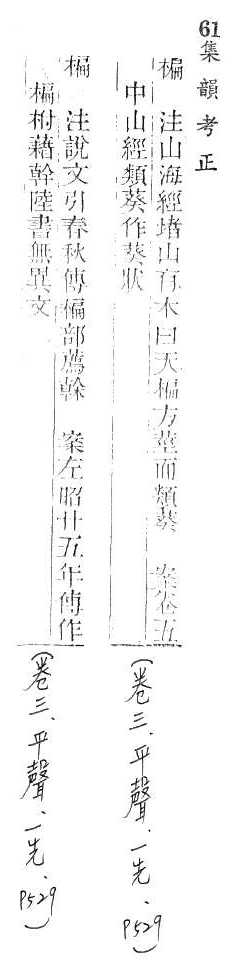 61集韻考正
楄 注山海經堵山有木曰天楄方莖而類葵 案卷五
中山經類葵作葵狀
(卷三、平聲、一先、P529)
楄 注說文引春秋傳楄部薦榦 案左昭廿五年傳作
楄柎藉幹陸書無異文
(卷三、平聲、一先、P529)